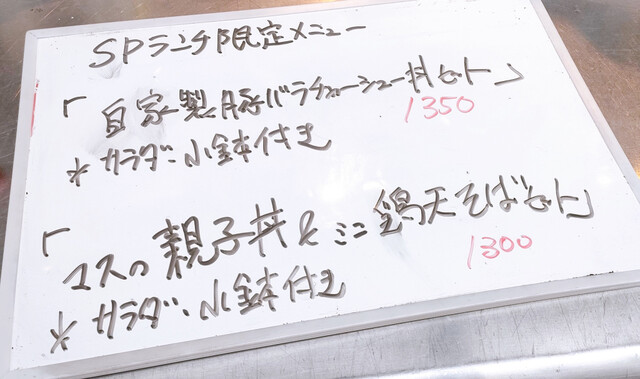 SPランチ限定メニュー
「自家製豚バラチャーシュー丼セット」
1350
*サラダ・小鉢付き
「マスの親子丼&ミニ鶏天そばセット」
1300
*サラダ・小鉢付き